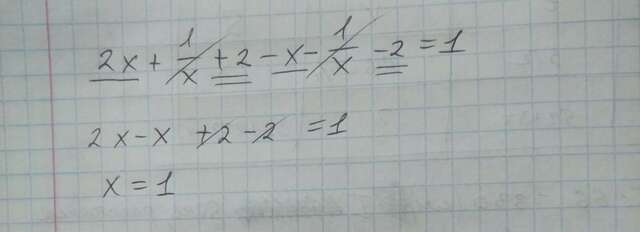 2x + 1/x + 2 - x - 1/x - 2 = 1
2x - x + 2 - 2 = 1
x = 1